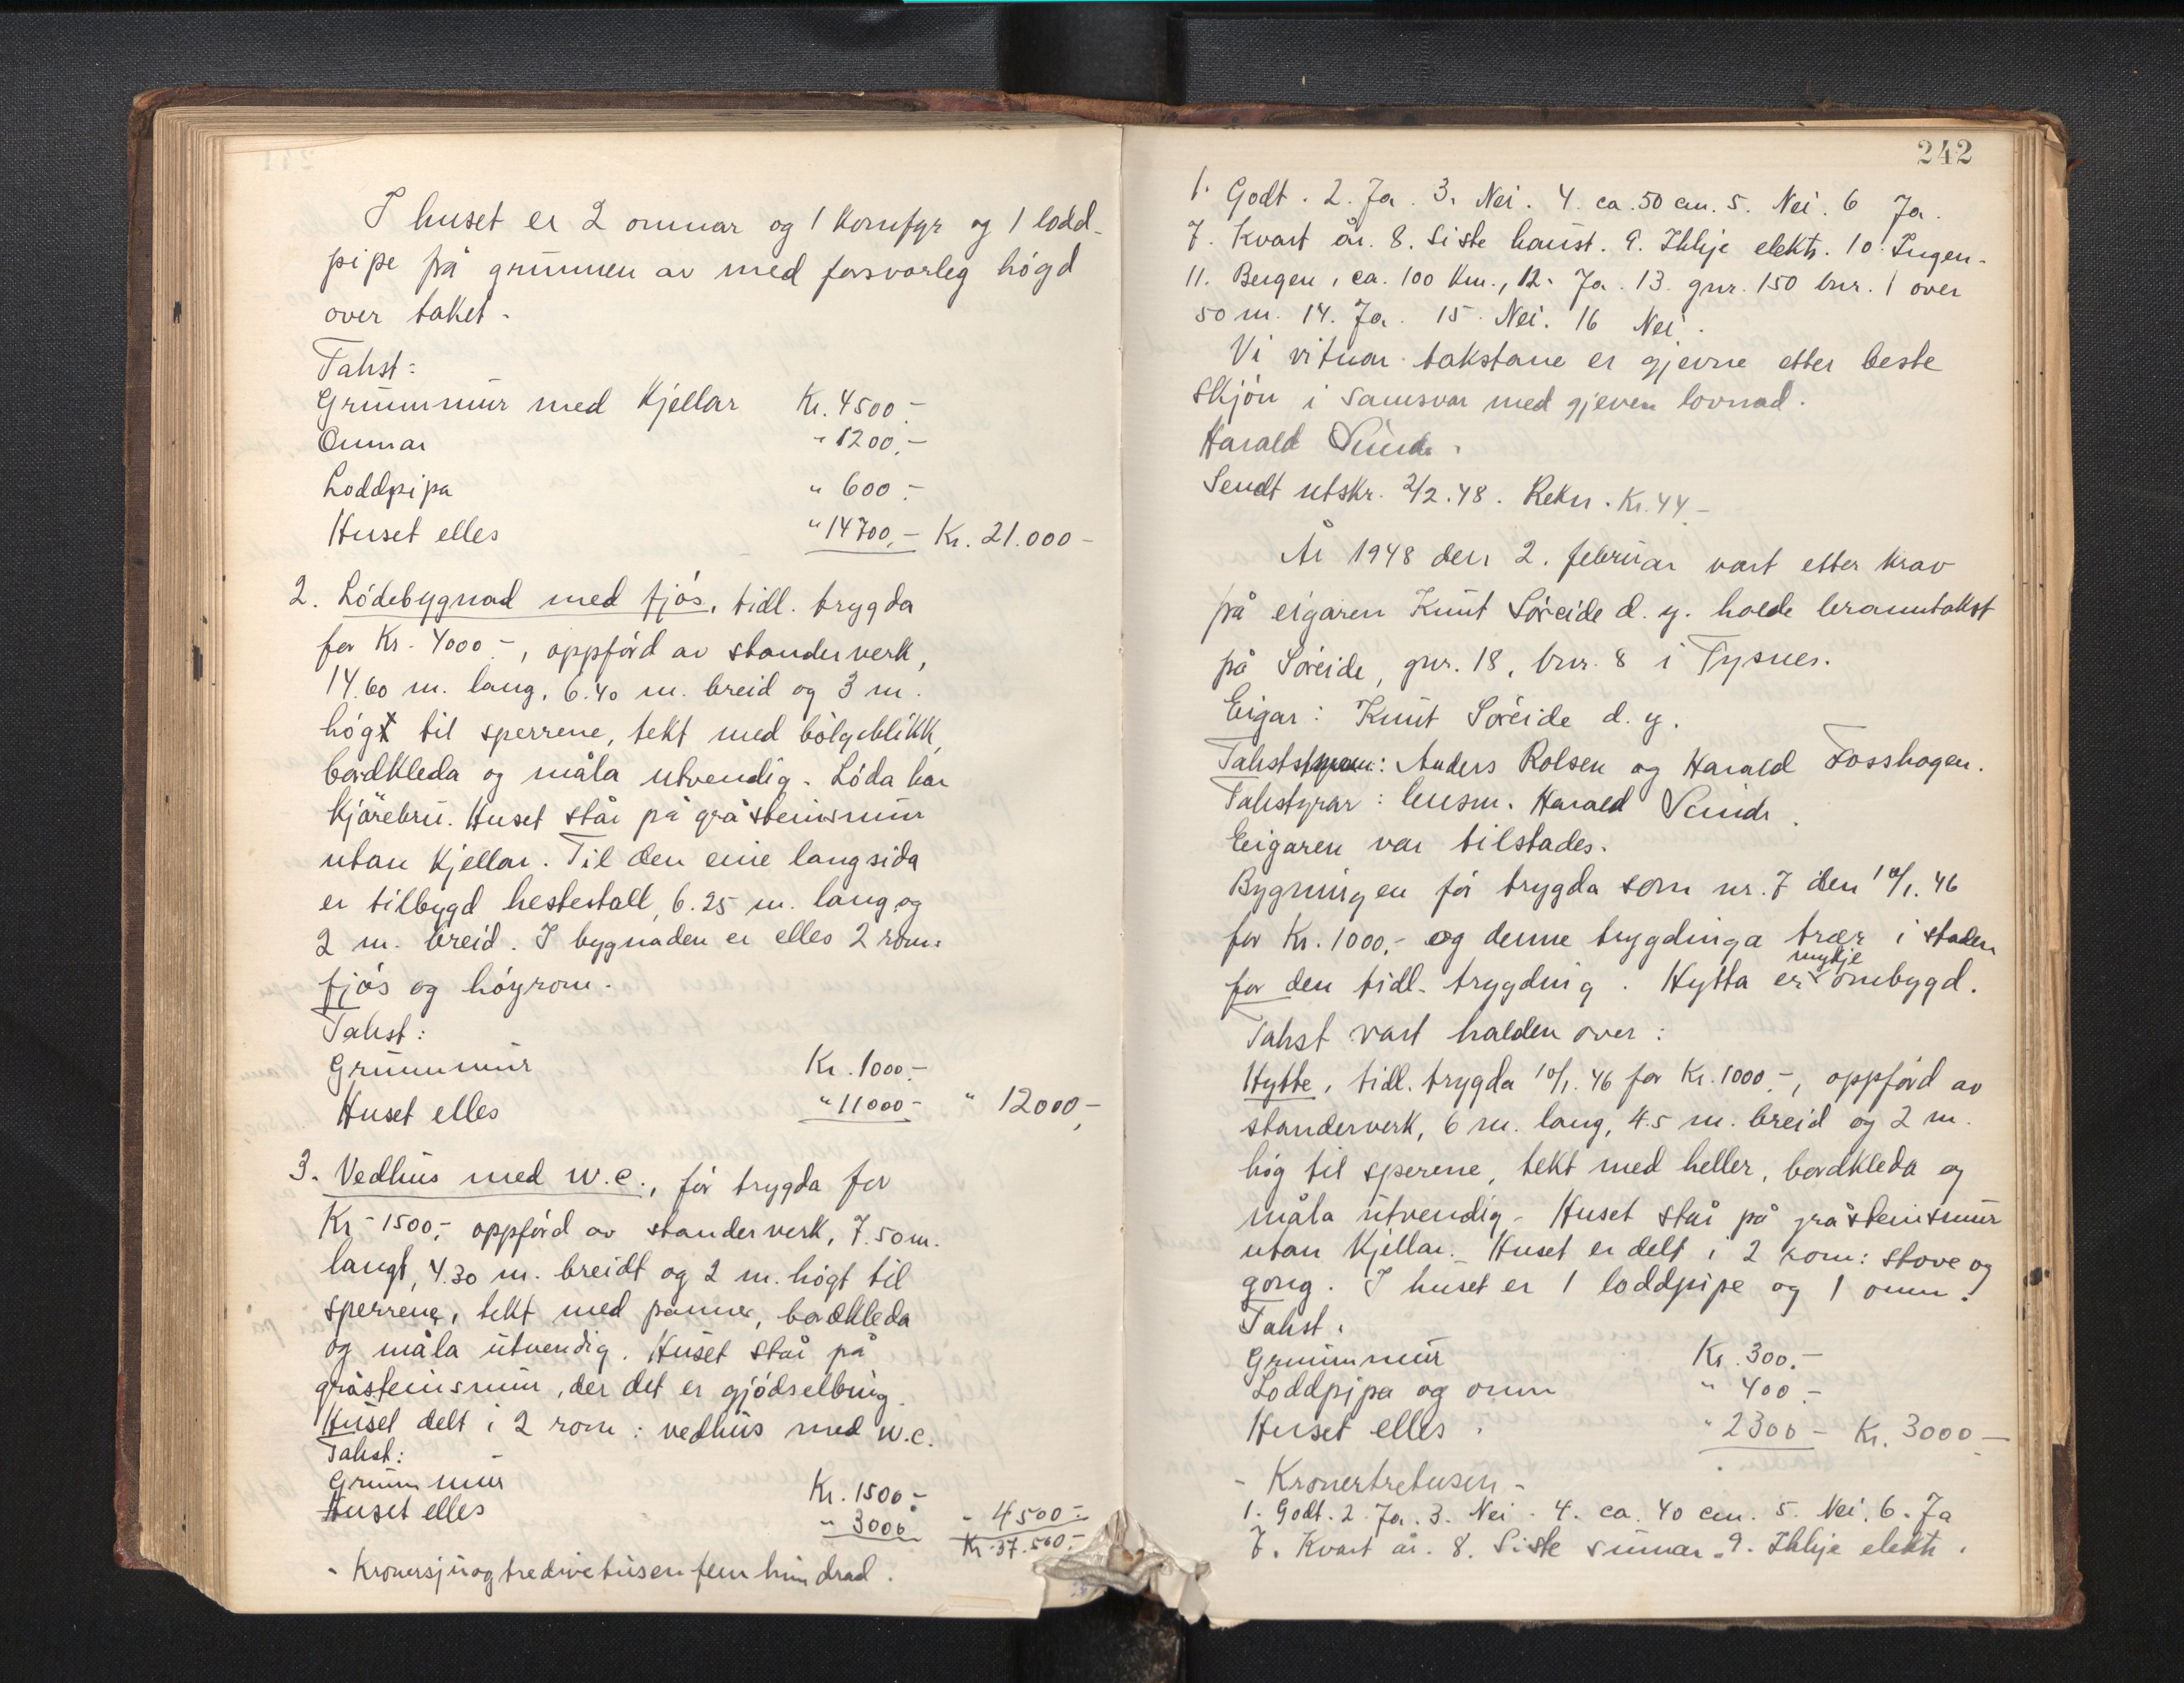 I huset er 2 omnar og 1 komfyr og 1 lodd-
pipe frå grunnen av med forsvarleg högd
over taket.
Takst:
Grunnmur med kjellar Kr. 4500.-
Omnar " 1200,-
Loddpipa " 600.-
Huset elles " 14700,- Kr. 21.000-
2. Lödebygnad med fjös, tidl. trygda
for Kr. 4000.-, oppförd av standerverk,
14.60 m. lang, 6.40 m. breid og 3 m.
högt til sperrene, tekt med bölgeblikk,
bordkleda og måla utvendig. Löda har
kjörebru. Huset står på gråsteinsmur
utan kjellar. Til den eine langsida
er tilbygd hestestall, 6.25 m. lang og
2 m. breid. I bygnaden er elles 2 rom:
fjös og höyrom.
Takst:
Grunnmur Kr. 1000.-
Huset elles " 11000- " 12000,-
3. Vedhus med w.c., för trygda for
Kr. 1500,- oppförd av standerverk, 7.50 m.
langt, 4.30 m. breidt og 2 m. högt til
sperrene, tekt med panner, bordkleda
og måla utvendig. Huset står på
gråsteinsmur, der det er gjödselbing.
Huset delt i 2 rom: vedhus med w.c.
Takst:
Grunnmur Kr. 1500.-
Huset elles " 3000 - 4500.-
Kr. 37.500.-
- Kronersjuogtredivetusenfemhundrad.
242
1. Godt. 2. Ja. 3. Nei. 4. ca. 50 cm. 5. Nei. 6 Ja.
7. Kvart år. 8. Siste haust. 9. Ikkje elektr. 10. Ingen.
11. Bergen, ca. 100 km., 12. Ja. 13. gnr. 150 bnr. 1 over
50 m. 14. Ja. 15. Nei. 16 Nei.
Vi vitnar takstane er gjevne etter beste
skjön i samsvar med gjeven lovnad.
Harald Sunde.
Sendt utskr. 2/2.48. Rekn. Kr. 44.-
År 1948 den 2. februar vart etter krav
på eigaren Knut Söreide d. y. halde branntakst
på Söreide, gnr. 18, bnr. 8 i Tysnes.
Eigar: Knut Söreide d. y.
: Anders Rolsen og Harald Fosshagen.
Takstyrar: lensm. Harald Sunde.
Eigaren var tilstades.
Bygningen för trygda som nr. 7 den 10/1. 46
for Kr. 1000,- og denne trygdinga trær i staden
for den tidl. trygding. Hytta er mykje ombygd.
Takst vart halden over:
Hytte, tidl. trygda 10/1. 46 for Kr. 1000.-, oppförd av
standerverk, 6 m. lang, 4.5 m. breid og 2 m.
hög til sperene, tekt med heller, bordkleda og
måla utvendig. Huset står på gråsteinsmur
utan kjellar. Huset er delt i 2 rom: stove og
gong. I huset er 1 loddpipe og 1 omn.
Takst.
Grunnmur Kr. 300.-
Loddpipa og omn " 400.-
Huset elles. " 2300 - Kr. 3000 -
- Kronertretusen -
1. Godt. 2. Ja. 3. Nei. 4. ca. 40 cm. 5. Nei. 6. Ja
7. Kvart år. 8. Siste sumar. 9. Ikkje elektr.